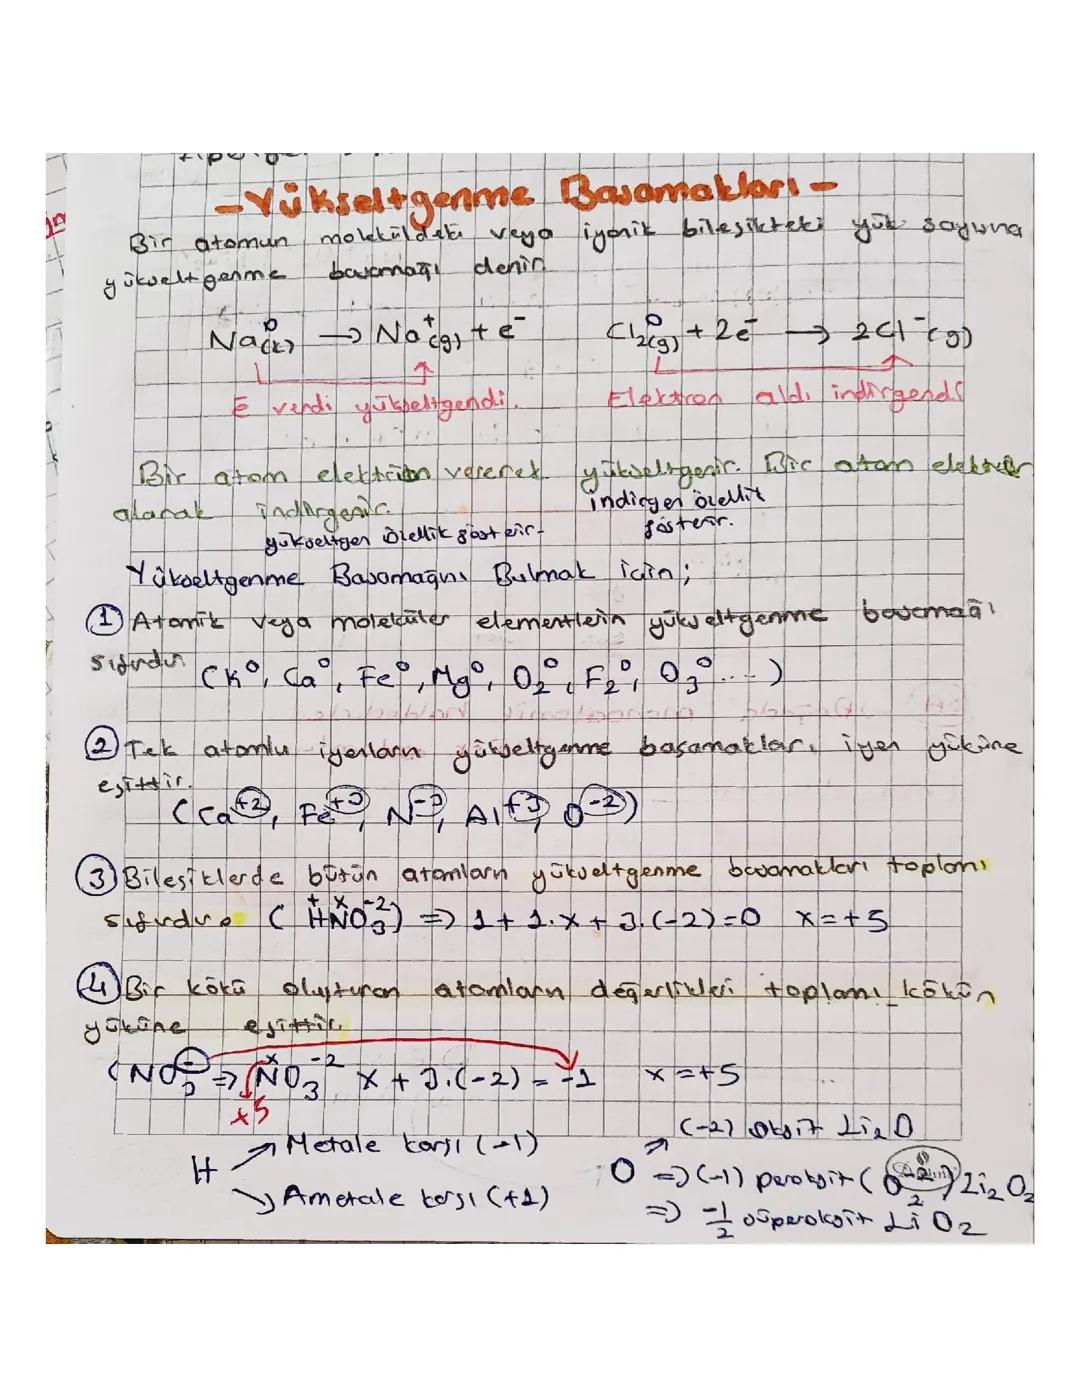 -Yükseltgenme Basamakları-
Bir atomun moleküldeki veya iyonik bileşikteki yük sayısına
yükseltgenme basamağı denir.
Na⁰(k) → Na⁺(g) + e⁻ Cl₂⁰(g) + 2e⁻ → 2Cl⁻(g)
ē verdi yükseltgendi. Elektron aldı indirgendi
Bir atom elektron vererek yükseltgenir. Bir atom elektron
alarak indirgenir. indirgen özellik
yükseltgen özellik gösterir. gösterir.
Yükseltgenme Basamağını Bulmak için;
① Atomik veya moleküler elementlerin yükseltgenme basamağı
sıfırdır (K⁰, Ca⁰, Fe⁰, Mg⁰, O₂⁰, F₂⁰, O₃⁰ ...)
② Tek atomlu iyonların yükseltgenme basamakları iyon yüküne
eşittir.
(Ca⁺², Fe⁺³, N⁻³, Al⁺³, O⁻²)
③ Bileşiklerde bütün atomların yükseltgenme basamakları toplamı
sıfırdır. (H⁺NˣO₃⁻²) ⇒ 1 + 1.x + 3.(-2)=0 x=+5
④ Bir kökü oluşturan atomların değerlikleri toplamı kökün
yüküne eşittir.
(NO₃⁻ ⇒ NˣO₃⁻² x + 3.(-2) = -1 x=+5
+5
H → Metale karşı (-1)
→ Ametale karşı (+1)
O → (-2) oksit Li₂O
⇒ (-1) peroksit (O₂⁻²) Li₂O₂
⇒ -1/2 süperoksit LiO₂